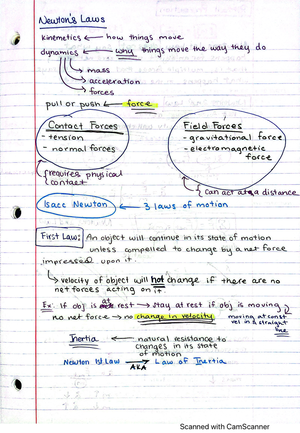 Newton's Laws
kinematics ← how things move
dynamics ← why things move the way they do
→ mass
→ acceleration
→ forces
pull or push ← force
Contact Forces
- tension
- normal forces
Field Forces
- gravitational force
- electromagnetic force
requires physical contact
can act at a distance
Isacc Newton ← 3 laws of motion
First Law: An object will continue in its state of motion
unless compelled to change by a net force
impressed upon it.
↳ velocity of object will not change if there are no
net forces acting on it
Ex: If obj at rest → stay at rest if obj is moving
no net force → no change in velocity
moving at const
vel in a straight
line
Inertia ← natural resistance to
changes in its state
of motion
Newton 1st Law → Law of Inertia
AKA
Scanned with CamScanner